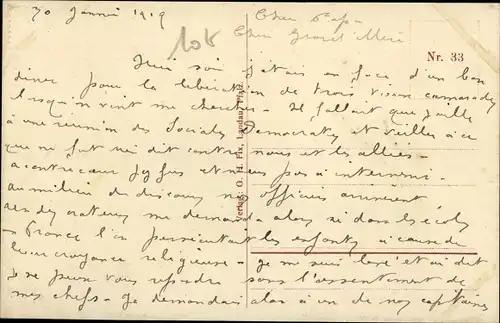 30 Janvier 1919
Cher Papa
Chère Grand'Mère
108
Nr. 33
Hier soir j'étais en face d'un bon
diner pour la libération de trois vieux camarades
lorsqu'on vint me chercher. Il fallait que j'aille
à une réunion des Sociales Democrates et veiller à ce
que ne fut rien dit contre nous et les alliés.
à contrecœur j'y fus et n'eus pas à intervenir.
Au milieu du discours nos officiers arrivèrent,
des orateurs me demanda alors si dans les écoles
en France l'on persécutait les enfants à cause de
leur croyance religieuse. Je me suis levé et ai dit
Je ne peux vous répondre sans l'assentiment de
mes chefs. Je demandai alors à un de nos capitaines
Verlag: O. H. Fix, Landau, Pfalz.